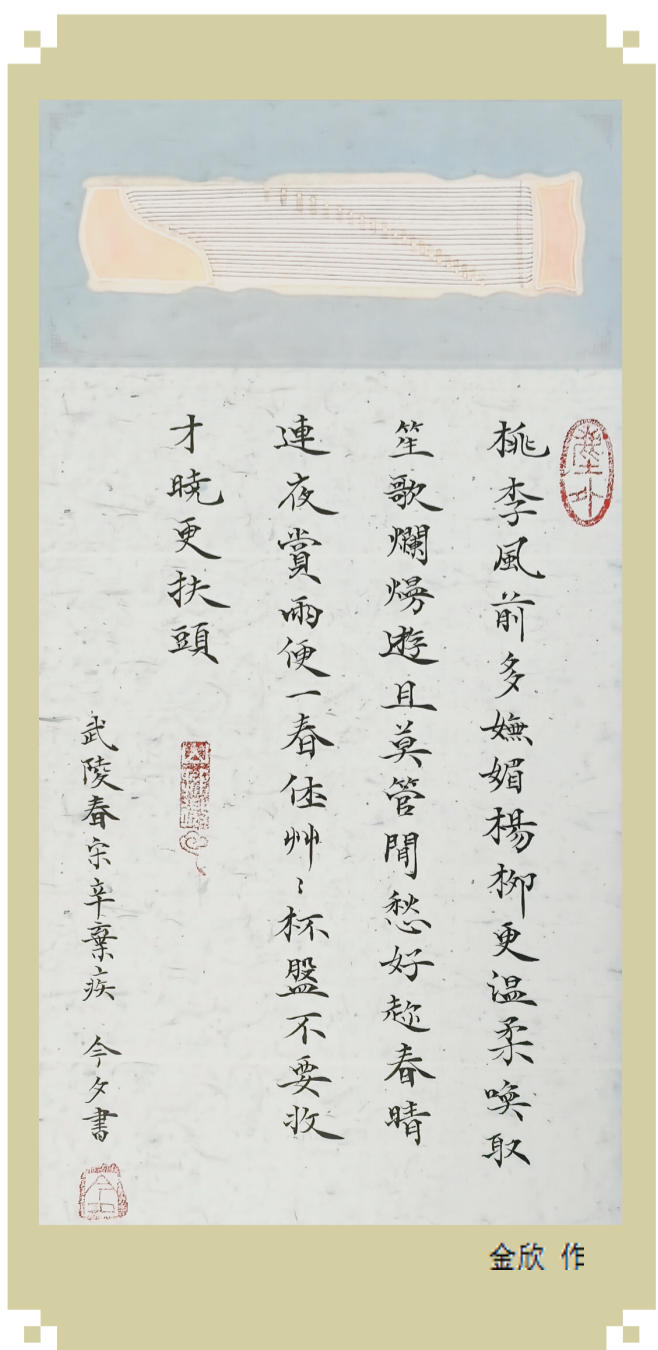 桃李風前多嫵媚楊柳更温柔喚取
笙歌爛熳遊且莫管閒愁好趂春晴
連夜賞雨便一春休艸〻杯盤不要收
才曉更扶頭
武陵春宋辛棄疾 今夕書
金欣 作